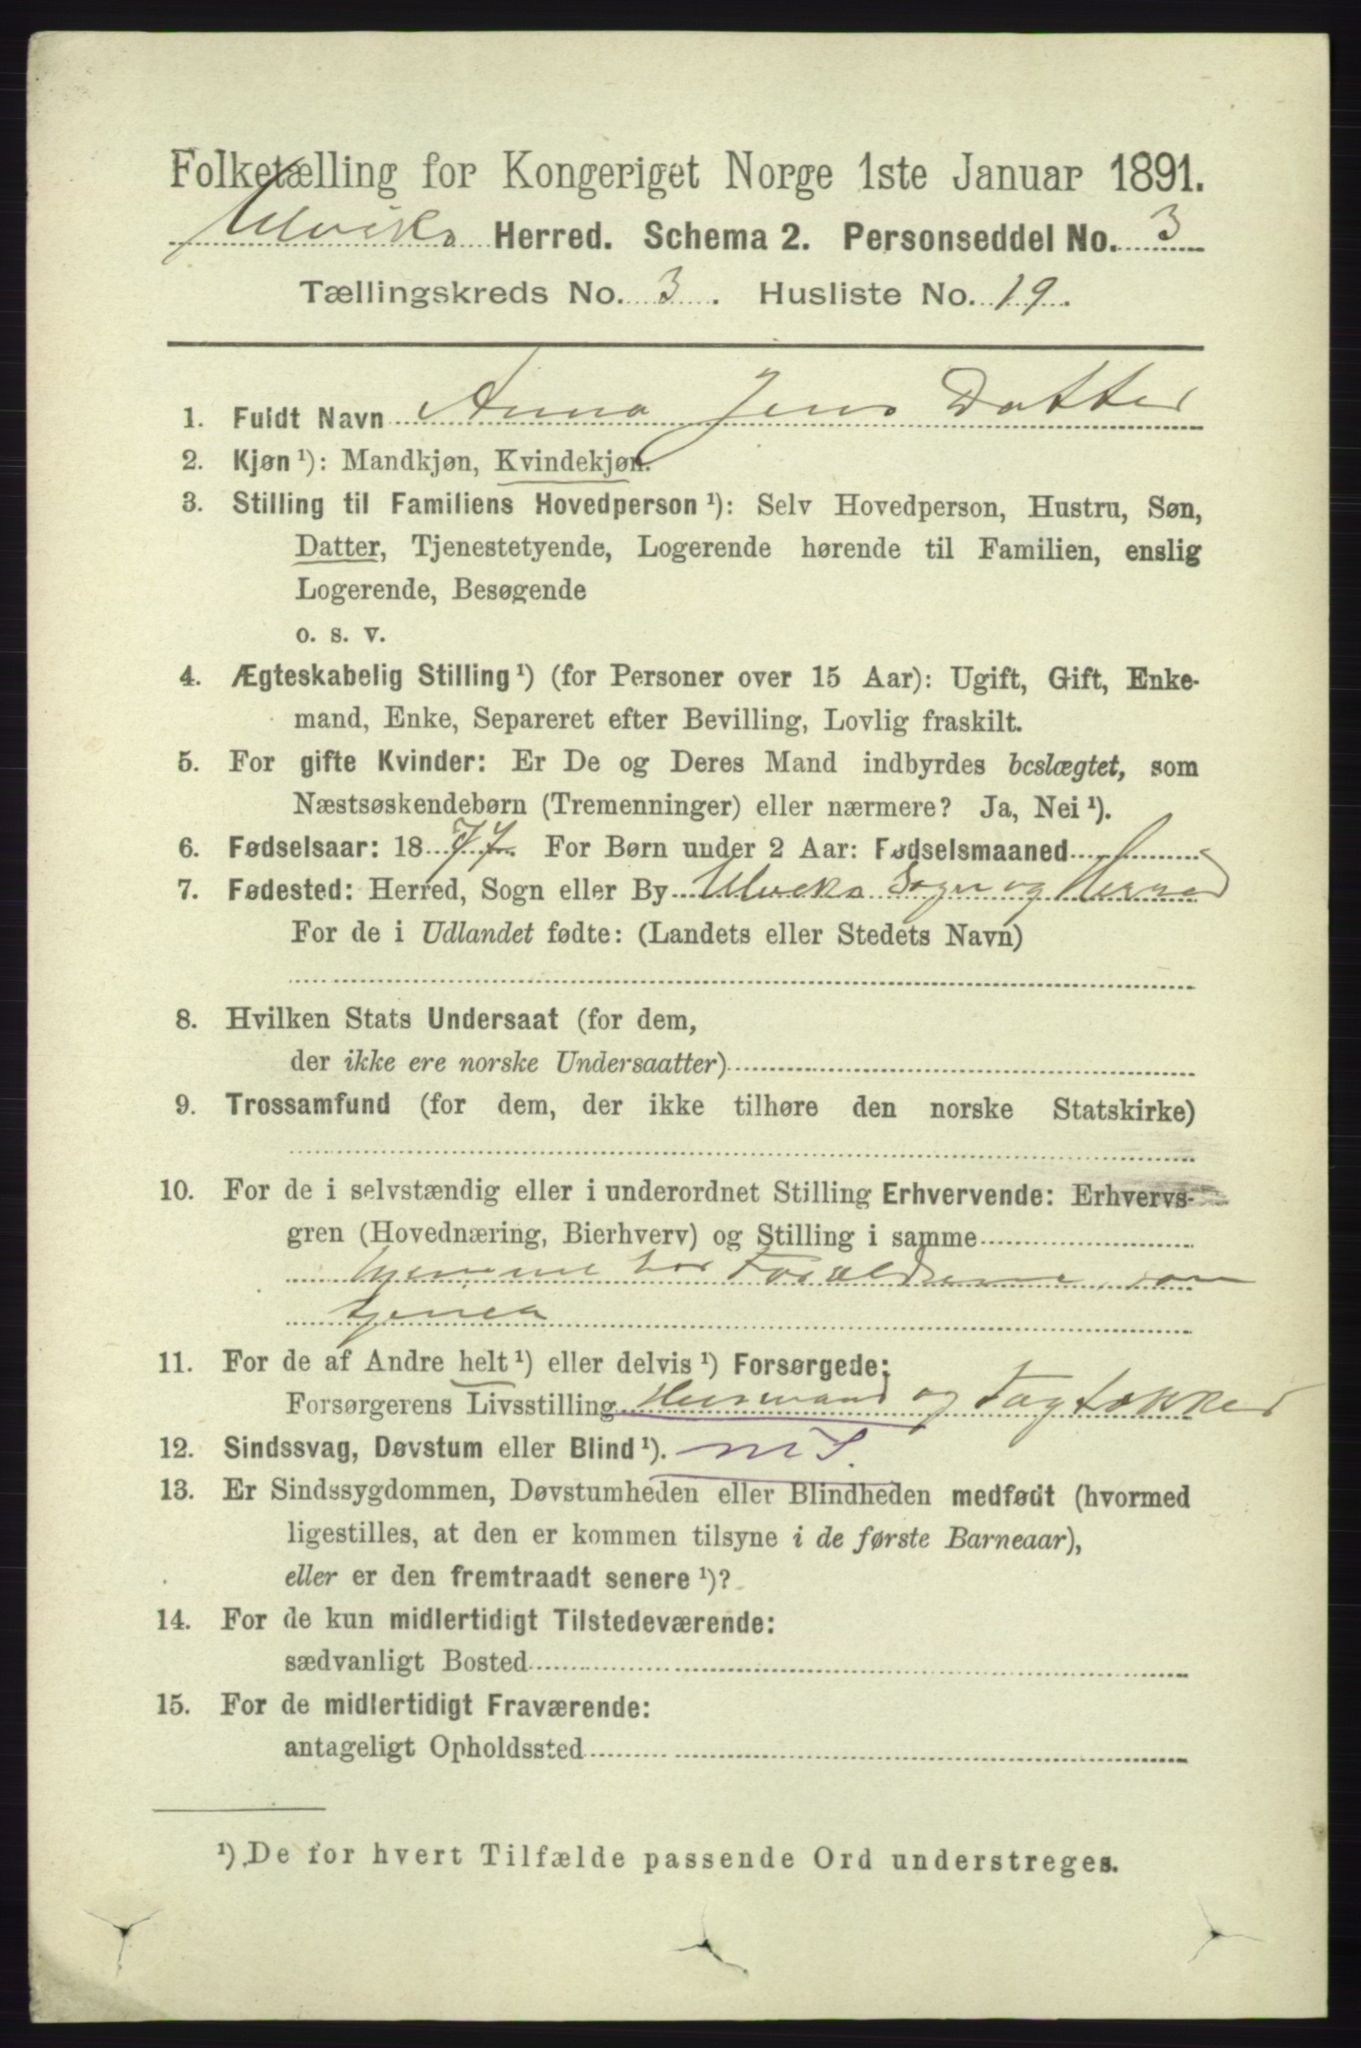 Folketælling for Kongeriget Norge 1ste Januar 1891.
Ulviks Herred. Schema 2. Personseddel No. 3
Tællingskreds No. 3. Husliste No. 19.
1. Fuldt Navn Anna Jens Datter
2. Kjøn ¹): Mandkjøn, Kvindekjøn.
3. Stilling til Familiens Hovedperson ¹): Selv Hovedperson, Hustru, Søn,
Datter, Tjenestetyende, Logerende hørende til Familien, enslig
Logerende, Besøgende
o. s. v.
4. Ægteskabelig Stilling ¹) (for Personer over 15 Aar): Ugift, Gift, Enke-
mand, Enke, Separeret efter Bevilling, Lovlig fraskilt.
5. For gifte Kvinder: Er De og Deres Mand indbyrdes beslægtet, som
Næstsøskendebørn (Tremenninger) eller nærmere? Ja, Nei ¹).
6. Fødselsaar: 1877. For Børn under 2 Aar: Fødselsmaaned
7. Fødested: Herred, Sogn eller By Ulviks Sogn og Herred
For de i Udlandet fødte: (Landets eller Stedets Navn)
8. Hvilken Stats Undersaat (for dem,
der ikke ere norske Undersaatter)
9. Trossamfund (for dem, der ikke tilhøre den norske Statskirke)
10. For de i selvstændig eller i underordnet Stilling Erhvervende: Erhvervs-
gren (Hovednæring, Bierhverv) og Stilling i samme
hjemme hos Forældrene, som
11. For de af Andre helt ¹) eller delvis ¹) Forsørgede:
Forsørgerens Livsstilling Husmand og Tagtækker
12. Sindssvag, Døvstum eller Blind ¹).
13. Er Sindssygdommen, Døvstumheden eller Blindheden medfødt (hvormed
ligestilles, at den er kommen tilsyne i de første Barneaar),
eller er den fremtraadt senere ¹)?
14. For de kun midlertidigt Tilstedeværende:
sædvanligt Bosted
15. For de midlertidigt Fraværende:
antageligt Opholdssted
¹) De for hvert Tilfælde passende Ord understreges.